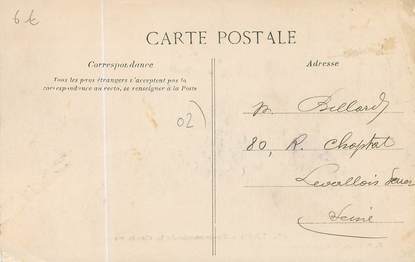 6 €
CARTE POSTALE
Correspondance
Tous les pays étrangers n'acceptent pas la
correspondance au recto, se renseigner à la Poste
02)
Adresse
M. Billard
80, R. Chaptal
Levallois Perret
Seine